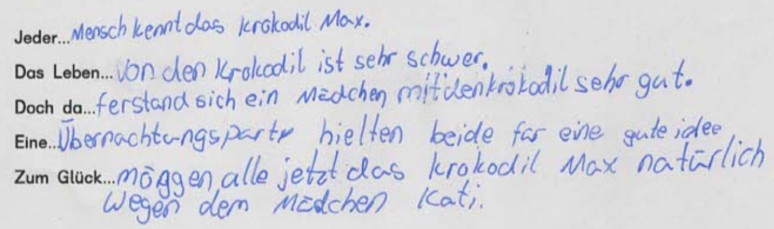 Jeder... Mensch kennt das Krokodil Max.
Das Leben... von den Krokodil ist sehr schwer.
Doch da... ferstand sich ein Mädchen mit den krokodil sehr gut.
Eine... Übernachtungsparty hielten beide für eine gute idee
Zum Glück... möggen alle jetzt das krokodil Max natürlich
wegen dem Mädchen Kati.